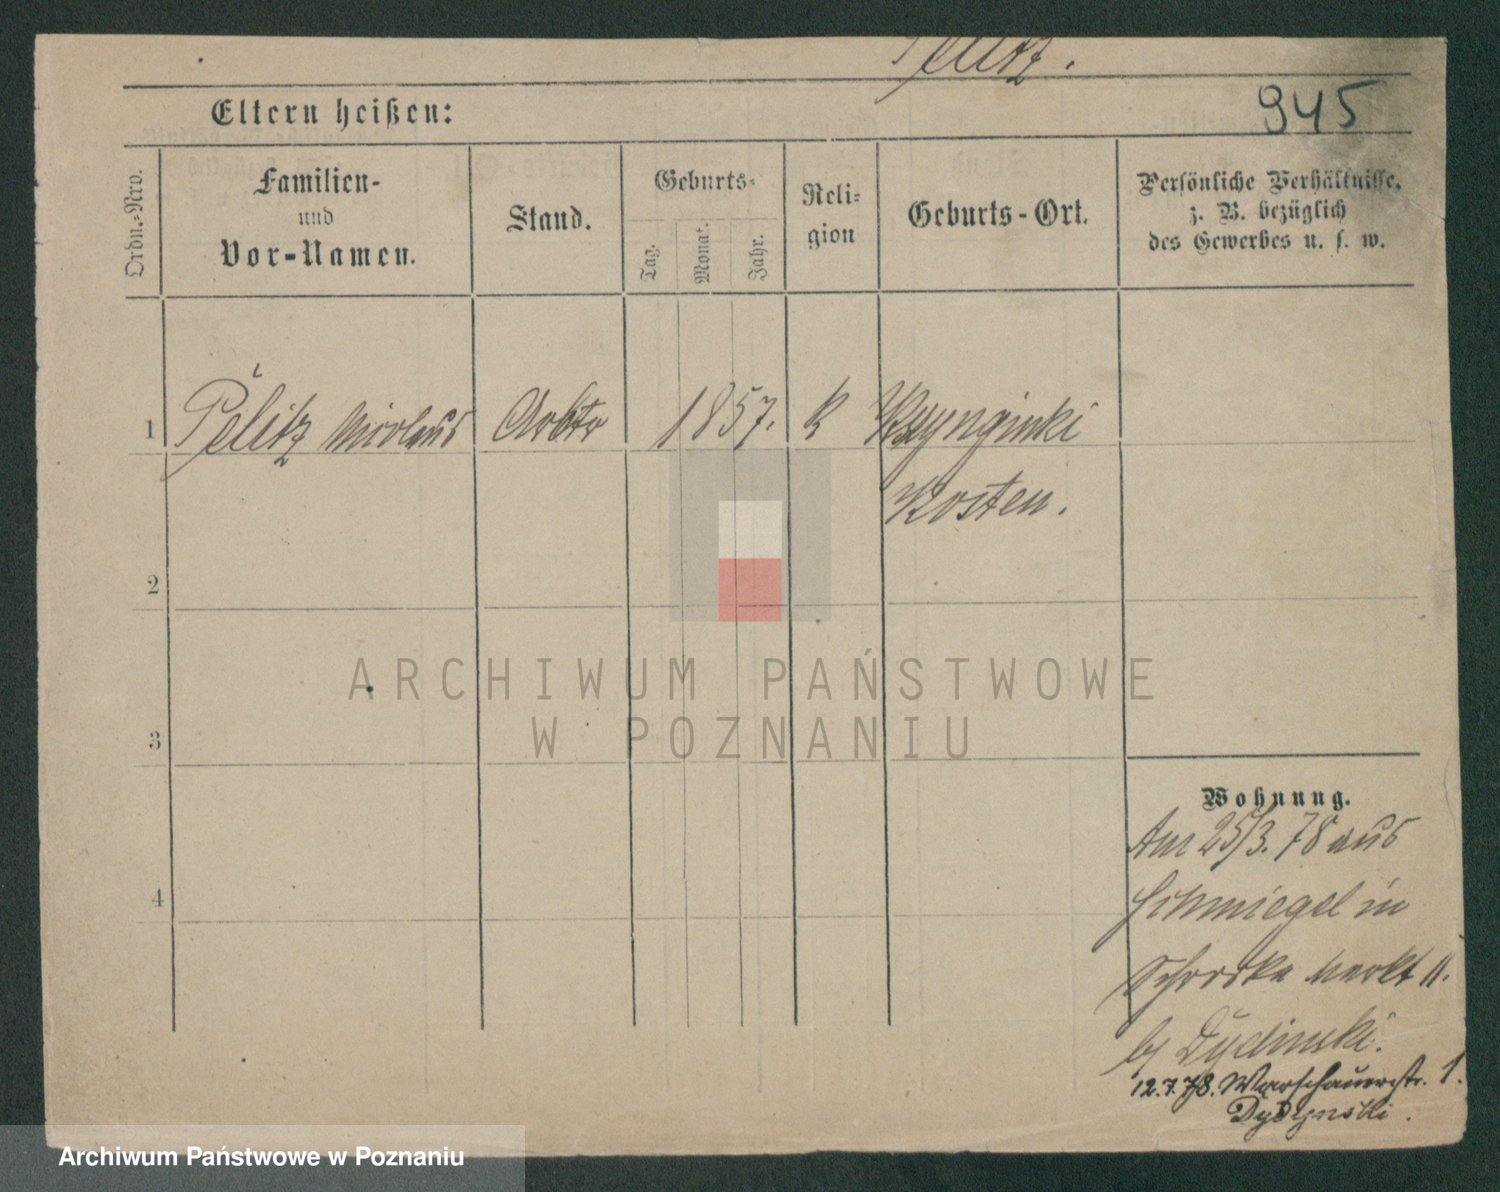 Pelitz.
945
Eltern heißen:
Ordn.-Nro.
Familien-
und
Vor-Namen.
Stand.
Geburts-
Tag.
Monat.
Jahr.
Reli-
gion
Geburts-Ort.
Persönliche Verhältnisse,
z. B. bezüglich
des Gewerbes u. s. w.
1 Pelitz Nicolaus Arbtr 1857. K
Kosten.
2
3
4
Wohnung.
Am 25/3. 78 aus
Schmiegel in
Schrodka Markt 11.
b/ Dydinski.
12.7.78. Warschauerstr. 1.
Dydzynski.
ARCHIWUM PAŃSTWOWE
W POZNANIU
Archiwum Państwowe w Poznaniu